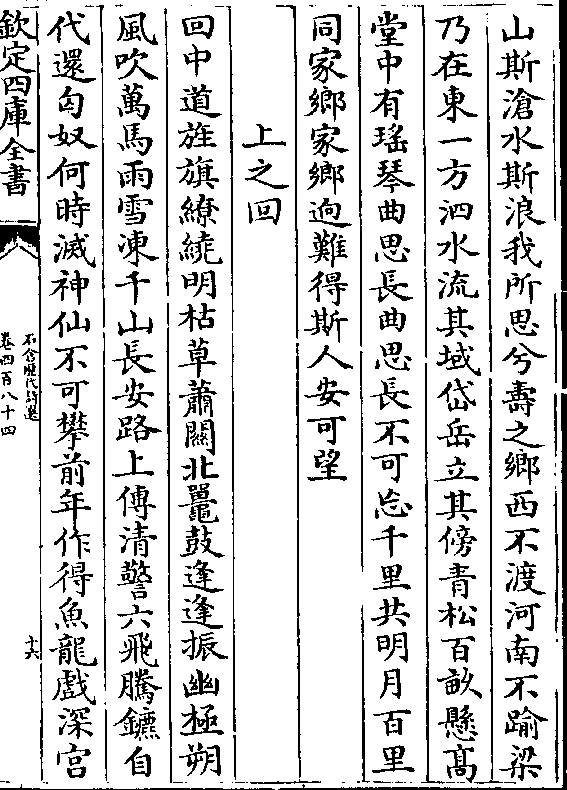 山斯滄水斯浪我所思兮壽之鄉西不渡河南不踰梁
乃在東一方泗水流其域岱岳立其傍青松百畝懸高
堂中有瑤琴曲思長曲思長不可忘千里共明月百里
同家鄉家鄉逈難得斯人安可望
上之回
回中道旌旗繚繞明枯草蕭關北鼉鼓逢逢振幽極朔
風吹萬馬雨雪凍千山長安路上傳清警六飛騰鑣自
代還匈奴何時滅神仙不可攀前年作得魚龍戲深宫
欽定四庫全書
石倉歴代詩選
卷四百八十四
十六